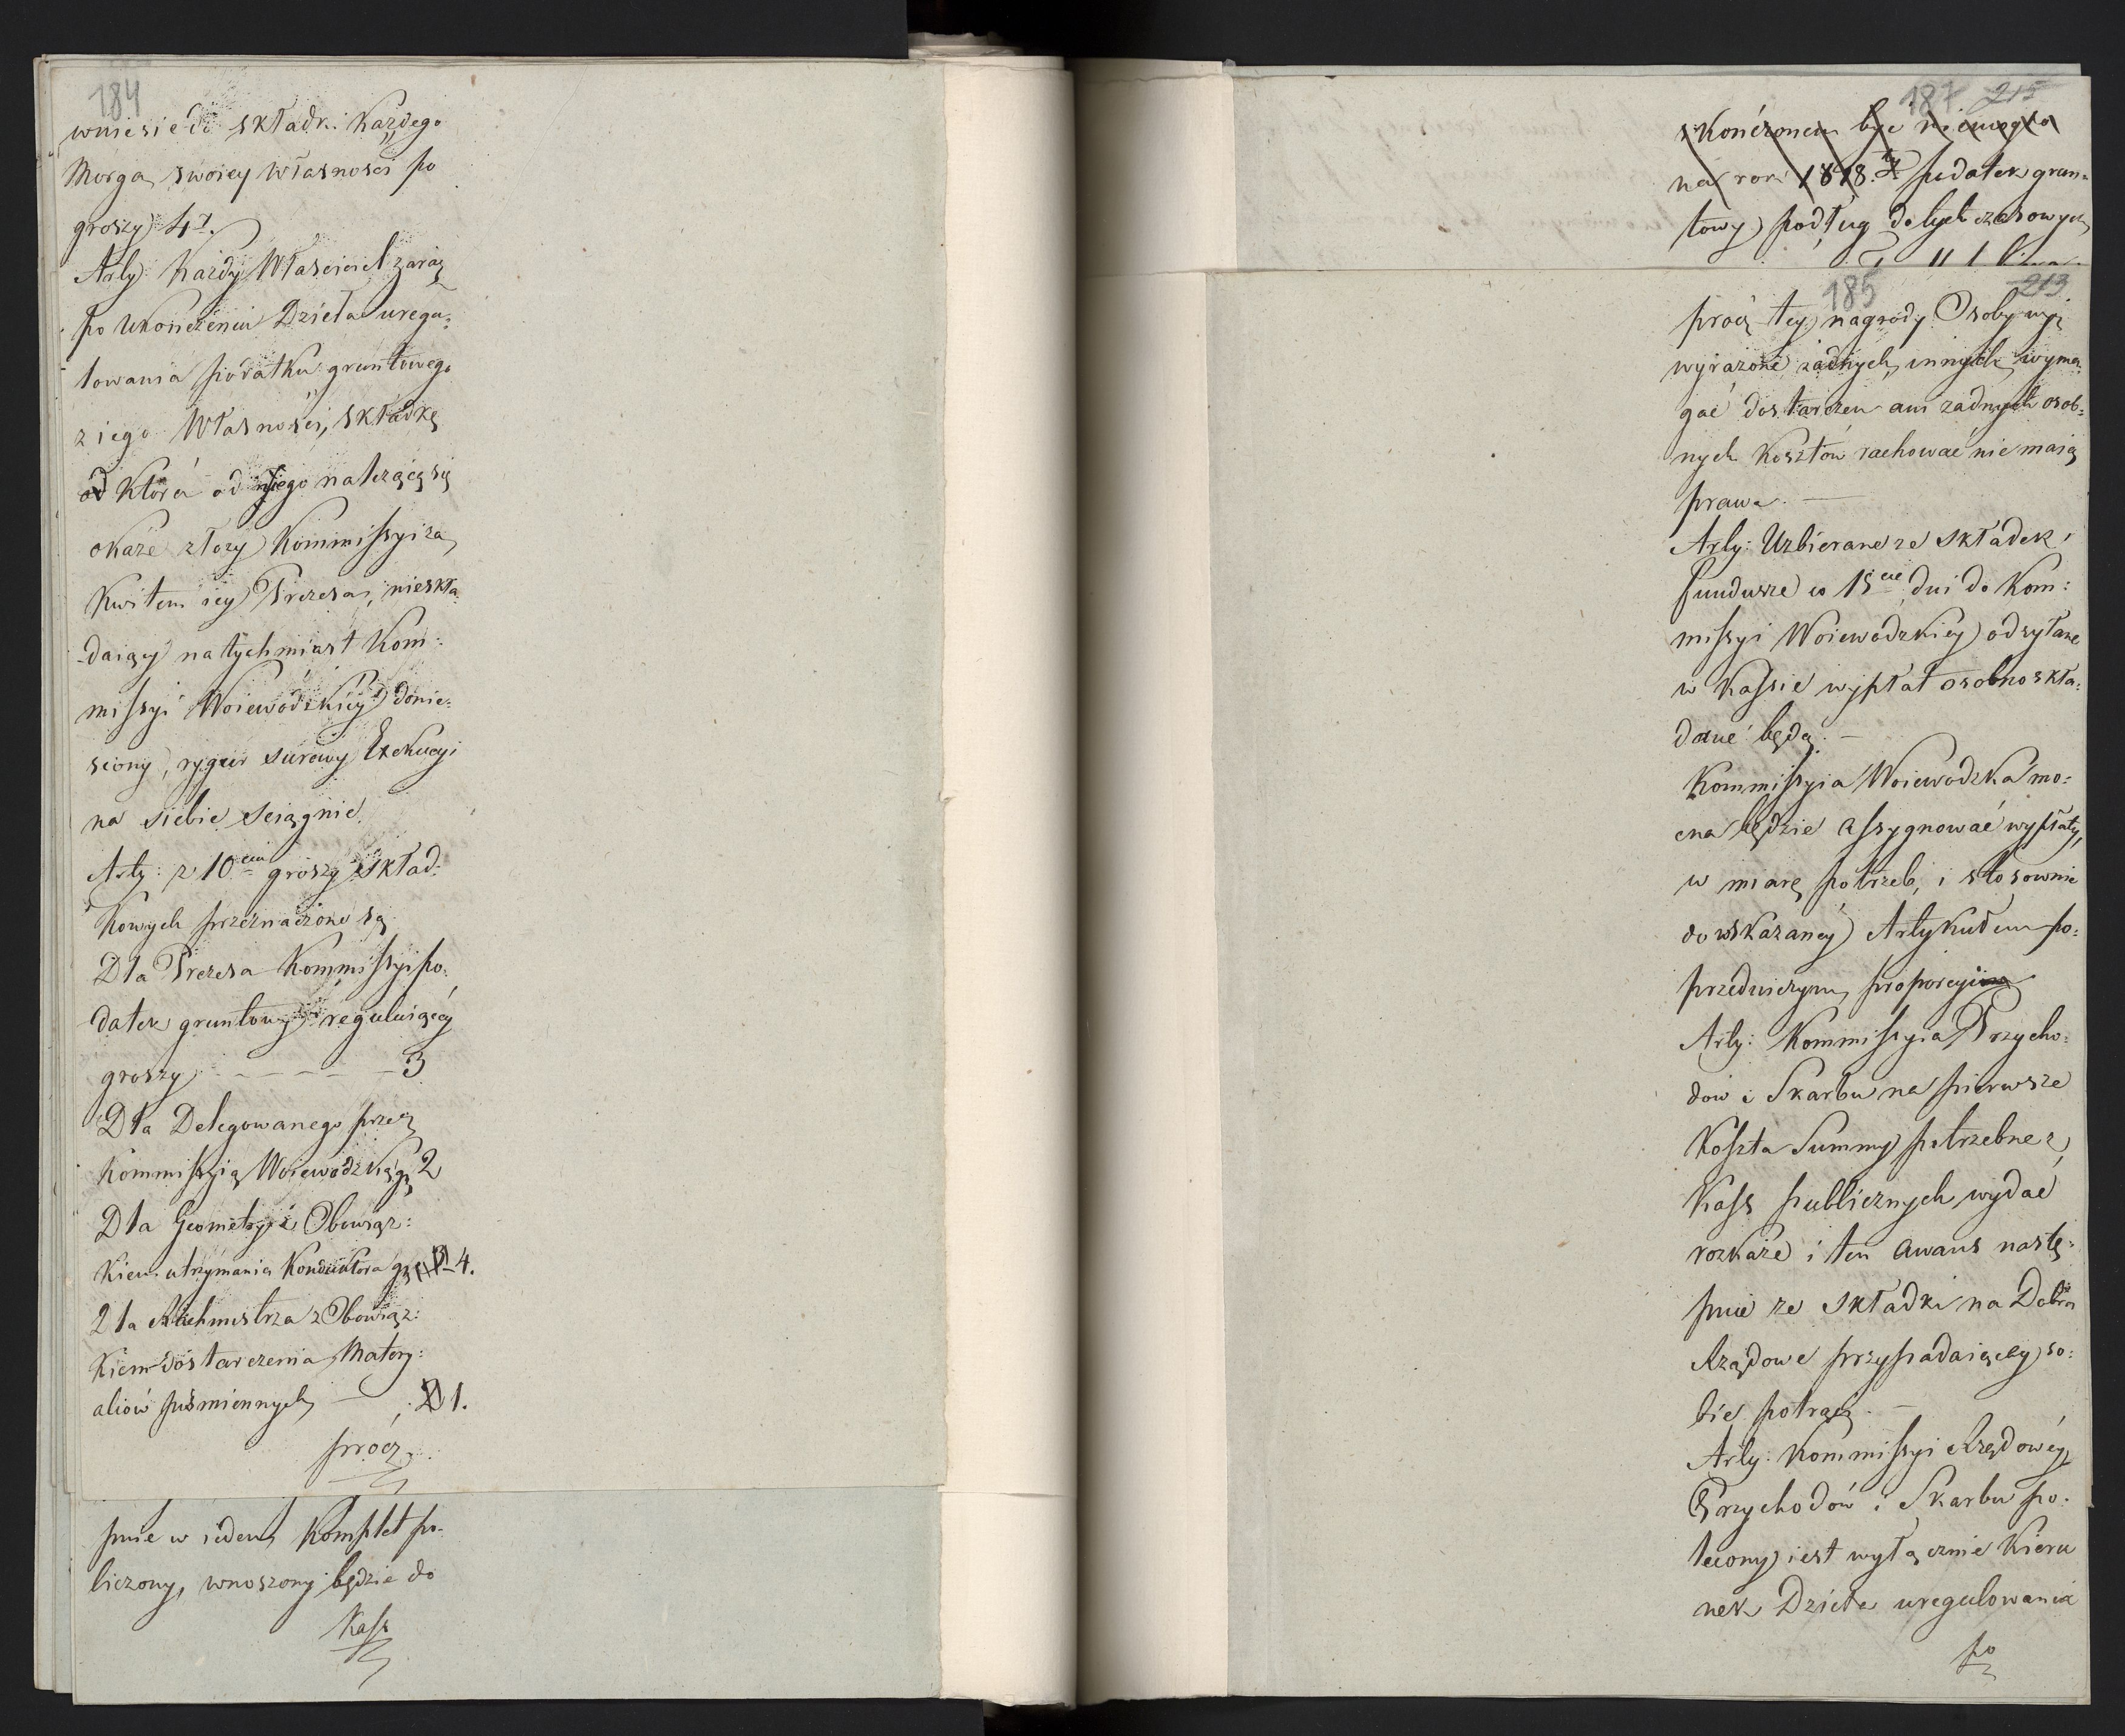 184
wniesie do składki każdego
Morga swoiey własności po
groszy
Arty: Każdy Właściciel zaraz
po ukończeniu Dzieła uregu:
lowania podatku gruntowego
z iego Własności, składkę
która od niego należącą się
okaże złoży Kommissyi za
Kwitem iey Prezesa, nieskła:
daiący natychmiast Kom:
missyi Woiewodzkiey donie:
siony, rygor surowy Exekucyi
na siebie sciągnie.
Arty: z 10ciu groszy skład:
kowych przeznaczone są
Dla Prezesa Kommissyi po:
datek gruntowy reguluiącey
groszy - - - - - 3
Dla Delegowanego przez
Kommissyią Woiewodzką gr 2
Dla Geometry z Obowiąz:
kiem utrzymania Konduktora gr 4.
Dla Rachmistrza z Obowiąz:
kiem dostarczenia Matery:
aliów piśmiennych — 1.
prócz
pnie w ieden Komplet po:
liczony, wnoszony będzie do
Kass
187 215
skończonem być niemogło
na rok 1818. podatek grun:
towy podług dotychczasowych
185 213
prócz tey nagrody Osoby wyż
wyrażone żadnych innych wyma:
gać dostarczeń ani żadnych osob:
nych Kosztów rachować nie maią
prawa. —
Arty: Uzbierane ze składek
fundusze co 15cie dni do Kom:
missyi Woiewodzkiey odsyłane
w Kassie wypłat osobno skła:
dane będą. —
Kommissyia Woiewodzka mo:
cna będzie assygnować wypłaty,
w miarę potrzeb, i stosownie
do wskazaney Artykułem po:
przedniczym proporcyi
Arty: Kommissyia Przycho:
dów i Skarbu na pierwsze
Koszta Summy potrzebne z
Kass publicznych wydać
rozkaże i ten awans nastę:
pnie ze składki na Dobra
Rządowe przypadaiącey so:
bie potrąci. —
Arty: Kommissyi Rządowéy
Przychodów i Skarbu po:
lecony iest wyłącznie Kieru
nek Dzieła uregulowania
po